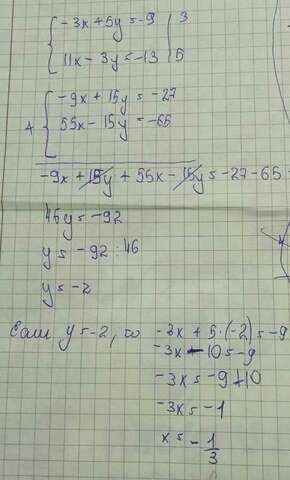 -3x + 5y = -9 | 3
11x - 3y = -13 | 5
-9x + 15y = -27
+
55x - 15y = -65
-9x + 15y + 55x - 15y = -27 - 65
46y = -92
y = -92 : 46
y = -2
Если y = -2, то -3x + 5 · (-2) = -9
-3x - 10 = -9
-3x = -9 + 10
-3x = -1
x = -1/3